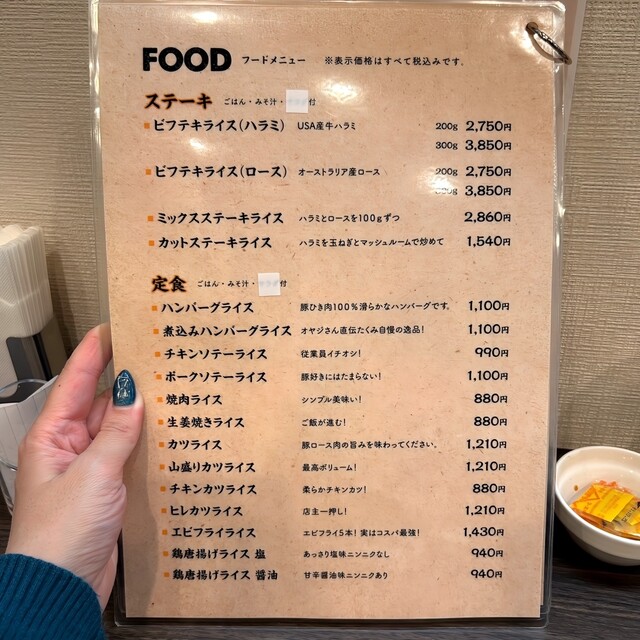 FOOD フードメニュー ※表示価格はすべて税込みです。
ステーキ ごはん・みそ汁・ 付
ビフテキライス(ハラミ) USA産牛ハラミ 200g 2,750円
300g 3,850円
ビフテキライス(ロース) オーストラリア産ロース 200g 2,750円
3,850円
ミックスステーキライス ハラミとロースを100gずつ 2,860円
カットステーキライス ハラミを玉ねぎとマッシュルームで炒めて 1,540円
定食 ごはん・みそ汁・ 付
ハンバーグライス 豚ひき肉100%滑らかなハンバーグです。 1,100円
煮込みハンバーグライス オヤジさん直伝たくみ自慢の逸品! 1,100円
チキンソテーライス 従業員イチオシ! 990円
ポークソテーライス 豚好きにはたまらない! 1,100円
焼肉ライス シンプル美味い! 880円
生姜焼きライス ご飯が進む! 880円
カツライス 豚ロース肉の旨みを味わってください。 1,210円
山盛りカツライス 最高ボリューム! 1,210円
チキンカツライス 柔らかチキンカツ! 880円
ヒレカツライス 店主一押し! 1,210円
エビフライライス エビフライ5本!実はコスパ最強! 1,430円
鶏唐揚げライス 塩 あっさり塩味ニンニクなし 940円
鶏唐揚げライス 醤油 甘辛醤油味ニンニクあり 940円